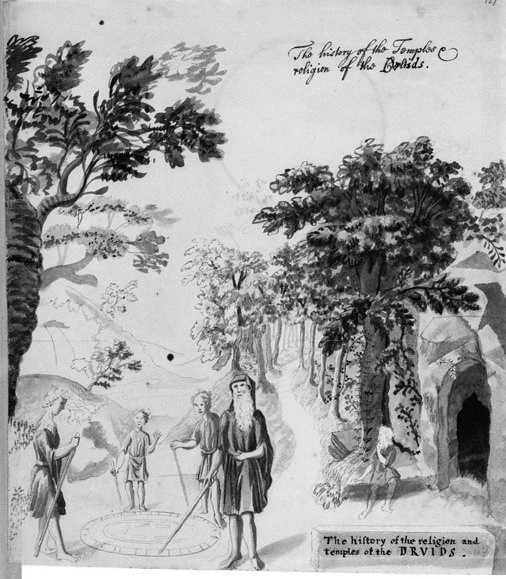 The history of the Temples &
religion of the Druids.
The history of the religion and
temples of the DRVIDS.